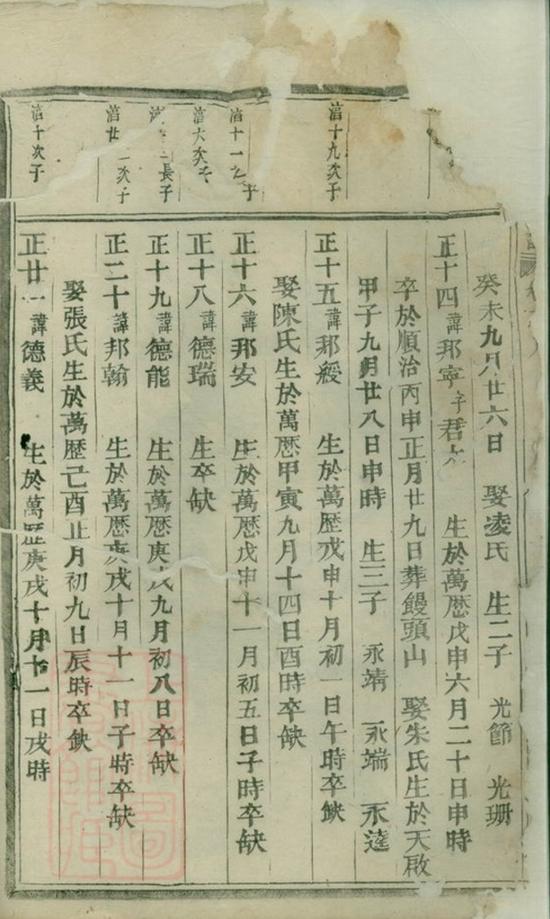 癸未九月廿六日　娶凌氏　生二子　光節　光珊
正十四諱邦寧字君　生於萬歷戊申六月二十日申時
卒於順治丙申正月廿九日葬饅頭山　娶朱氏生於天啟
甲子九月廿八日申時　生三子　永靖　永端　永達
濳十九次子
正十五諱邦綬　生於萬歷戊申十月初一日午時卒缺
娶陳氏生於萬歷甲寅九月十四日酉時卒缺
濳十一　子
正十六諱邦安　生於萬歷戊申十一月初五日子時卒缺
濳六次子
正十八諱德瑞　生卒缺
長子
正十九諱德能　生於萬歷庚戌九月初八日卒缺
濳廿　次子
正二十諱邦翰　生於萬歷庚戌十月十一日子時卒缺
娶張氏生於萬歷己酉正月初九日辰時卒缺
濳十次子
正廿一諱德義　生於萬歷庚戌十月十一日戌時